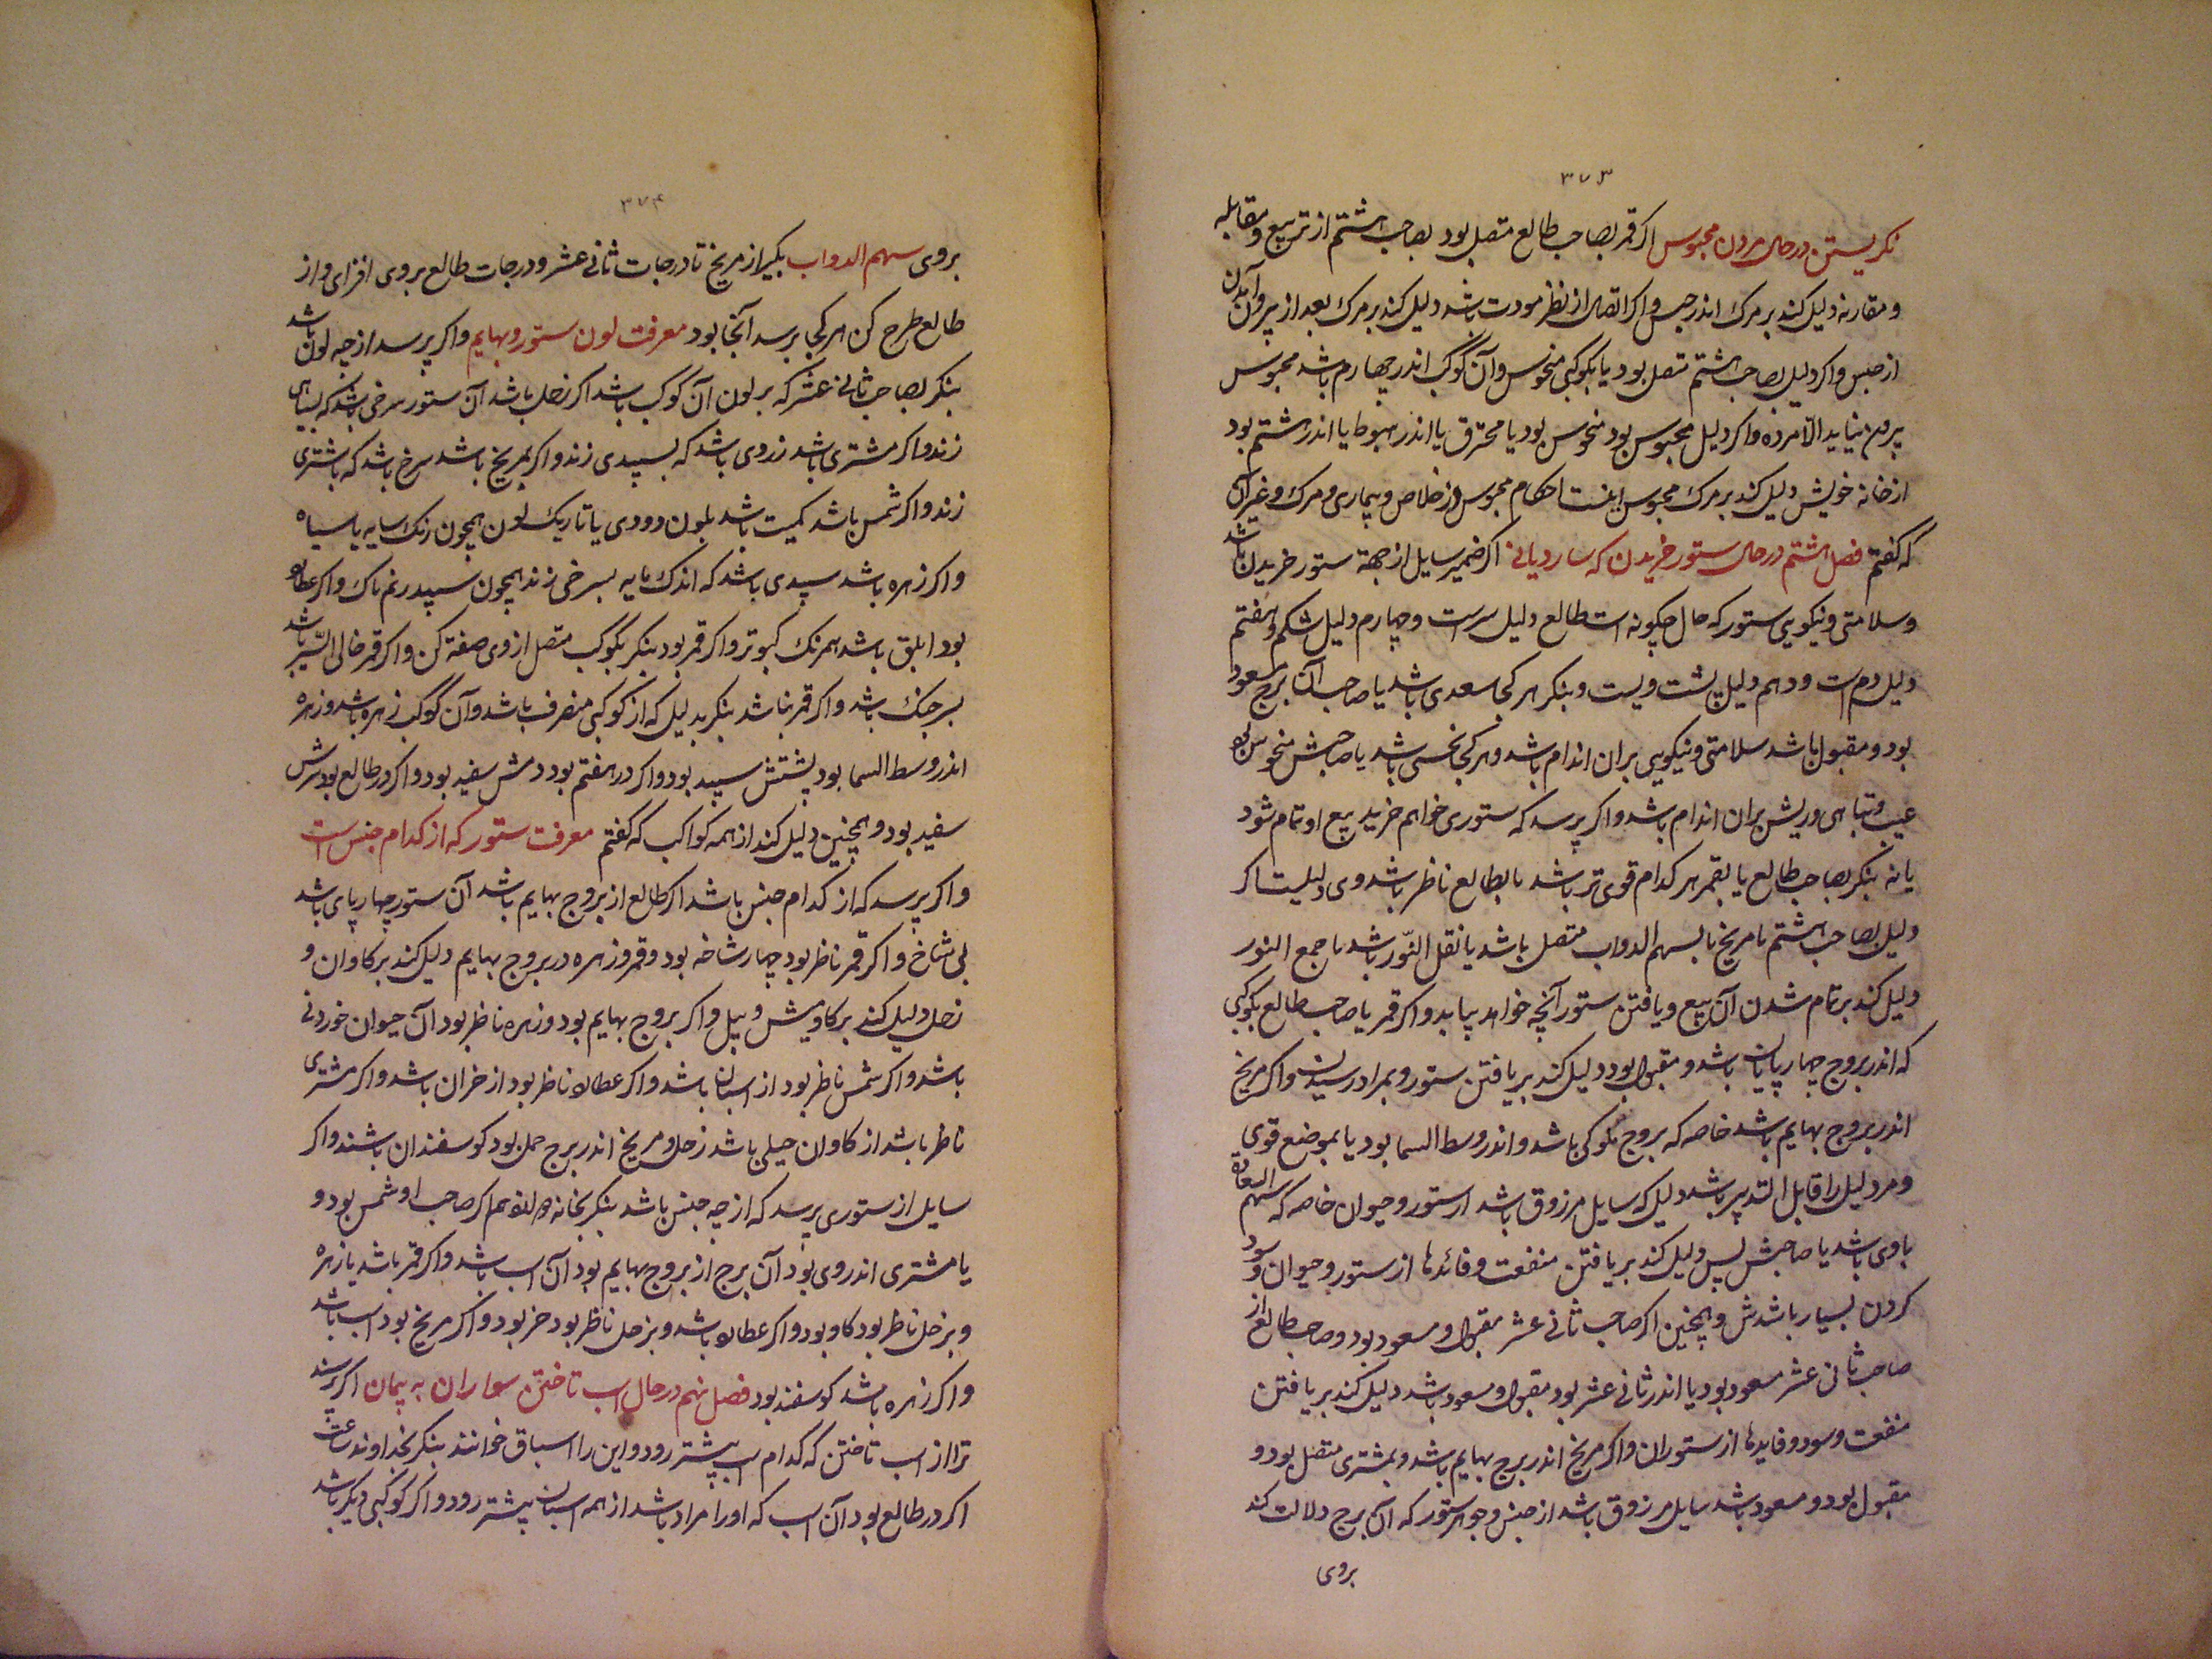 ۳۷۳
نکریستن در حال مردن محبوس اکر قمر بصاحب طالع متصل بود بصاحب هشتم از تربیع و مقابله
و مقارنه دلیل کند بر مرک اندر حبس و اکر اتصال از نظر مودت باشد دلیل کند بر مرک بعد از بیرون آمدن
از حبس و اکر دلیل بصاحب هشتم متصل بود یا بکوکبی منحوس و آن کوکب اندر چهارم باشد محبوس
بیرون نیاید الا مرده و اکر دلیل محبوس بود منحوس بود یا محترق یا اندر هبوط یا اندر هشتم بود
از خانه خویش دلیل کند بر مرک محبوس اینست احکام محبوس از خلاص و بیماری و مرک و غیر آن
که کفتم فصل هشتم در حال ستور خریدن که سار دیانی اکر ضمیر سایل از جهة ستور خریدن باشد
و سلامتی و نیکویی ستور که حال چکونه است طالع دلیل سرست و چهارم دلیل شکم و هفتم
دلیل دم است و دهم دلیل پشت ویست و بنکر هر کجا سعدی باشد یا صاحب آن برج مسعود
بود و مقبول باشد سلامتی و نیکویی بران اندام باشد و هر کجا نحسی باشد یا صاحبش منحوس بود
عیب و تباهی و ریش بران اندام باشد و اکر پرسد که ستوری خواهم خرید بیع او تمام شود
یا نه بنکر بصاحب طالع یا بقمر هر کدام قوی تر باشد یا بطالع ناظر باشد وی دلیلست اکر
دلیل بصاحب هشتم یا مریخ یا بسهم الدواب متصل باشد یا نقل النّور باشد یا جمع النور
دلیل کند بر تمام شدن آن بیع و یافتن ستور آنچه خواهد بیابد و اکر قمر یا صاحب طالع بکوکبی
که اندر بروج چهارپایان باشد و مقبول بود دلیل کند بر یافتن ستور و بمراد رسیدن و اکر مریخ
اندر بروج بهایم باشد خاصه که بروج ملوکی باشد و اندر وسط السما بود یا بموضع قوی
و مر دلیل را قابل التدبیر باشد دلیل که سایل مرزوق باشد از ستور و حیوان خاصه که سهم السعادة
باوی باشد یا صاحبش پس دلیل کند بر یافتن منفعت و فائدها از ستور و حیوان و سود
کردن بسیار باشدش و همچنین اکر صاحب ثانی عشر مقبول و مسعود بود و صاحب طالع از
صاحب ثانی عشر مسعود بود یا اندر ثانی عشر بود مقبول و مسعود باشد دلیل کند بر یافتن
منفعت و سود و فایدها از ستوران و اکر مریخ اندر برج بهایم باشد و بمشتری متصل بود و
مقبول بود و مسعود باشد سایل مرزوق باشد از جنس و جوهر ستور که آن برج دلالت کند
بروی
۳۷۴
بروی سهم الدواب بکیر از مریخ تا درجات ثانی عشر و درجات طالع بروی افزای و از
طالع طرح کن هر کجا برسد آنجا بود معرفت لون ستور و بهایم و اکر پرسد از چه لون باشد
بنکر بصاحب ثانی عشر که بر لون آن کوکب باشد اکر زحل باشد آن ستور سرخی باشد که بسیاهی
زند و اکر مشتری باشد زردی باشد که بسپیدی زند و اکر مریخ باشد سرخ باشد که باشتری
زند و اکر شمس باشد کمیت باشد بلون دودی یا تاریک لون همچون رنک سایه یا سیاه
و اکر زهره باشد سپیدی باشد که اندک مایه بسرخی زند همچون سپید رنم ناک و اکر عطارد
بود ابلق باشد همرنک کبوتر و اکر قمر بود بنکر بکوکب متصل از وی صفة کن و اکر قمر خالی السّیر باشد
بسر جنک باشد و اکر قمر نباشد بنکر بدلیل که از کوکبی منصرف باشد و آن کوکب زهره باشد و زهره
اندر وسط السما بود پشتش سپید بود و اکر در هفتم بود دمش سفید بود و اکر در طالع بود سرش
سفید بود و همچنین دلیل کند از همه کواکب که کفتم معرفت ستور که از کدام جنس است
و اکر پرسد که از کدام جنس باشد اکر طالع از بروج بهایم باشد آن ستور چهارپای باشد
بی شاخ و اکر قمر ناظر بود چهار شاخه بود و قمر و زهره در بروج بهایم دلیل کند بر کاوان و
زحل دلیل کند بر کاومیش و پیل و اکر بروج بهایم بود و زهره ناظر بود آن حیوان خوردنی
باشد و اکر شمس ناظر بود از اسبان باشد و اکر عطارد ناظر بود از خران باشد و اکر مشتری
ناظر باشد از کاوان جبلی باشد زحل و مریخ اندر برج حمل بود کوسفندان باشند و اکر
سایل از ستوری پرسد که از چه جنس باشد بنکر بخانه دوازدهم اکر صاحب او شمس بود و
یا مشتری اندر وی بود آن برج از بروج بهایم بود آن اسب باشد و اکر قمر باشد یا زهره
و بزحل ناظر بود کاو بود و اکر عطارد باشد و بزحل ناظر بود خر بود و اکر مریخ بود اسب باشد
و اکر زهره باشد کوسفند بود فصل نهم در حال اسب تاختن سواران به پیمان اکر پرسند
ترا از اسب تاختن که کدام اسب پیشتر رود و این را اسباق خوانند بنکر بخداوند ساعت
اکر در طالع بود آن اسب که او را مراد باشد از همه اسبان پیشتر رود و اکر کوکبی دیکر باشد